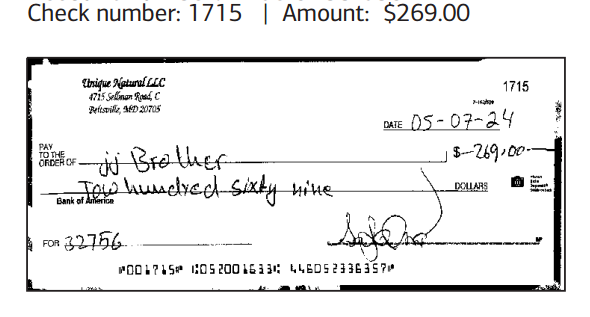 Check number: 1715 | Amount: $269.00
Unique Natural LLC
4715 Sellman Road, C
Beltsville, MD 20705
1715
DATE 05-07-24
PAY TO THE ORDER OF JJ Brother $ 269.00
Tow hundred sixty nine DOLLARS
Bank of America
FOR 32756
⑈001715⑈ ⑆052001633⑆ 446052336357⑈